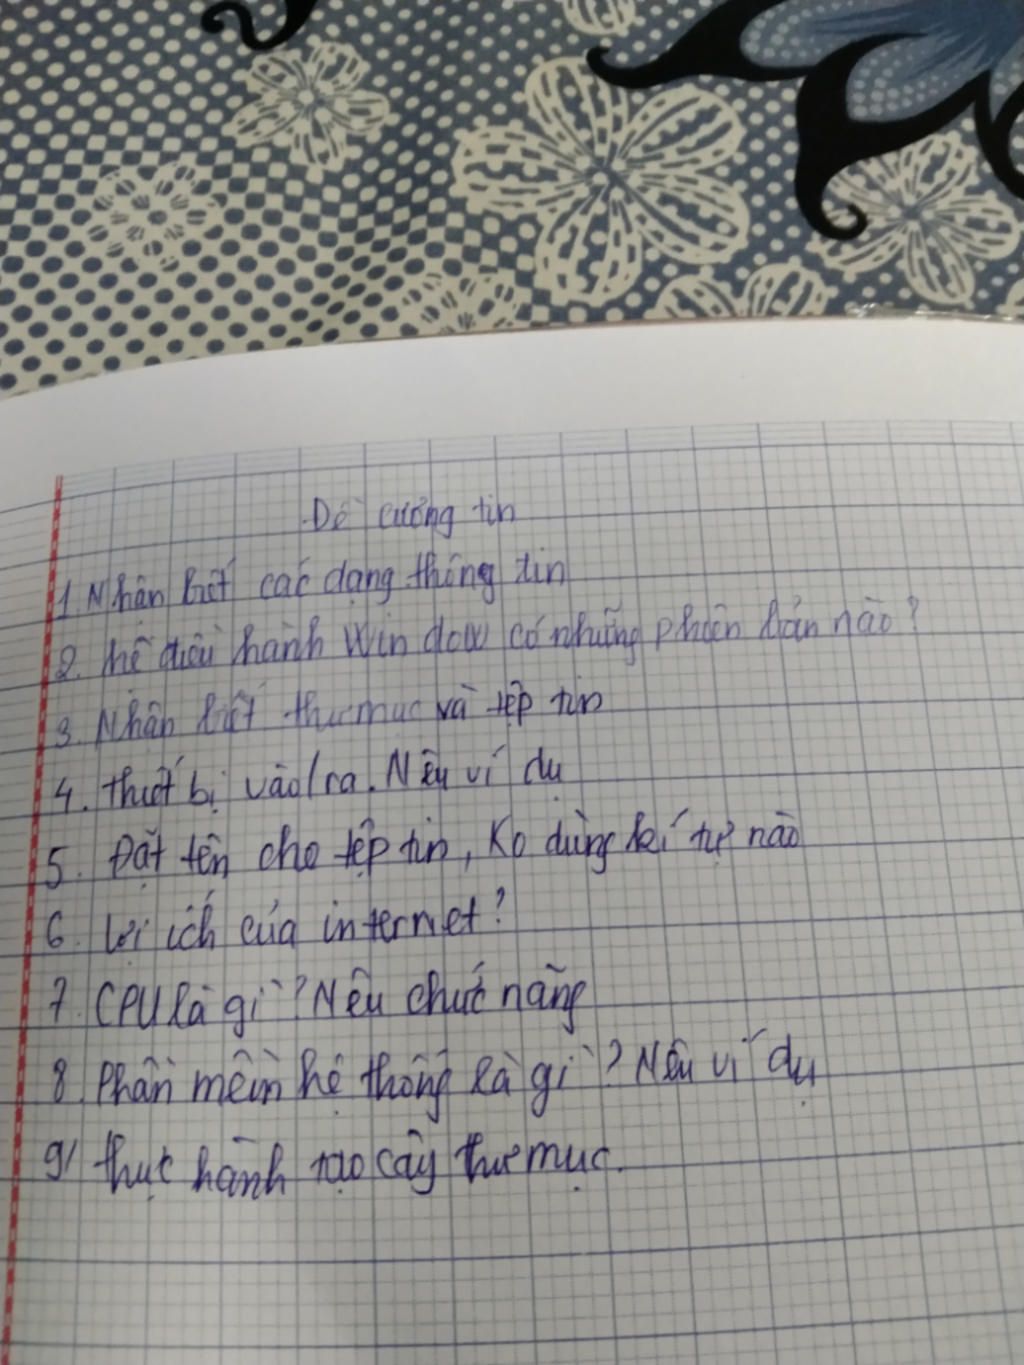 Đề cương tin
1. Nhận biết các dạng thông tin
2. hệ điều hành Win dow có những phiên bản nào?
3. Nhận biết thư mục và tệp tin
4. Thiết bị vào/ra. Nêu ví dụ
5. Đặt tên cho tệp tin, Ko dùng kí tự nào
6. Lợi ích của internet?
7. CPU là gì? Nêu chức năng
8. Phần mềm hệ thống là gì? Nêu ví dụ
9/ thực hành tạo cây thư mục.